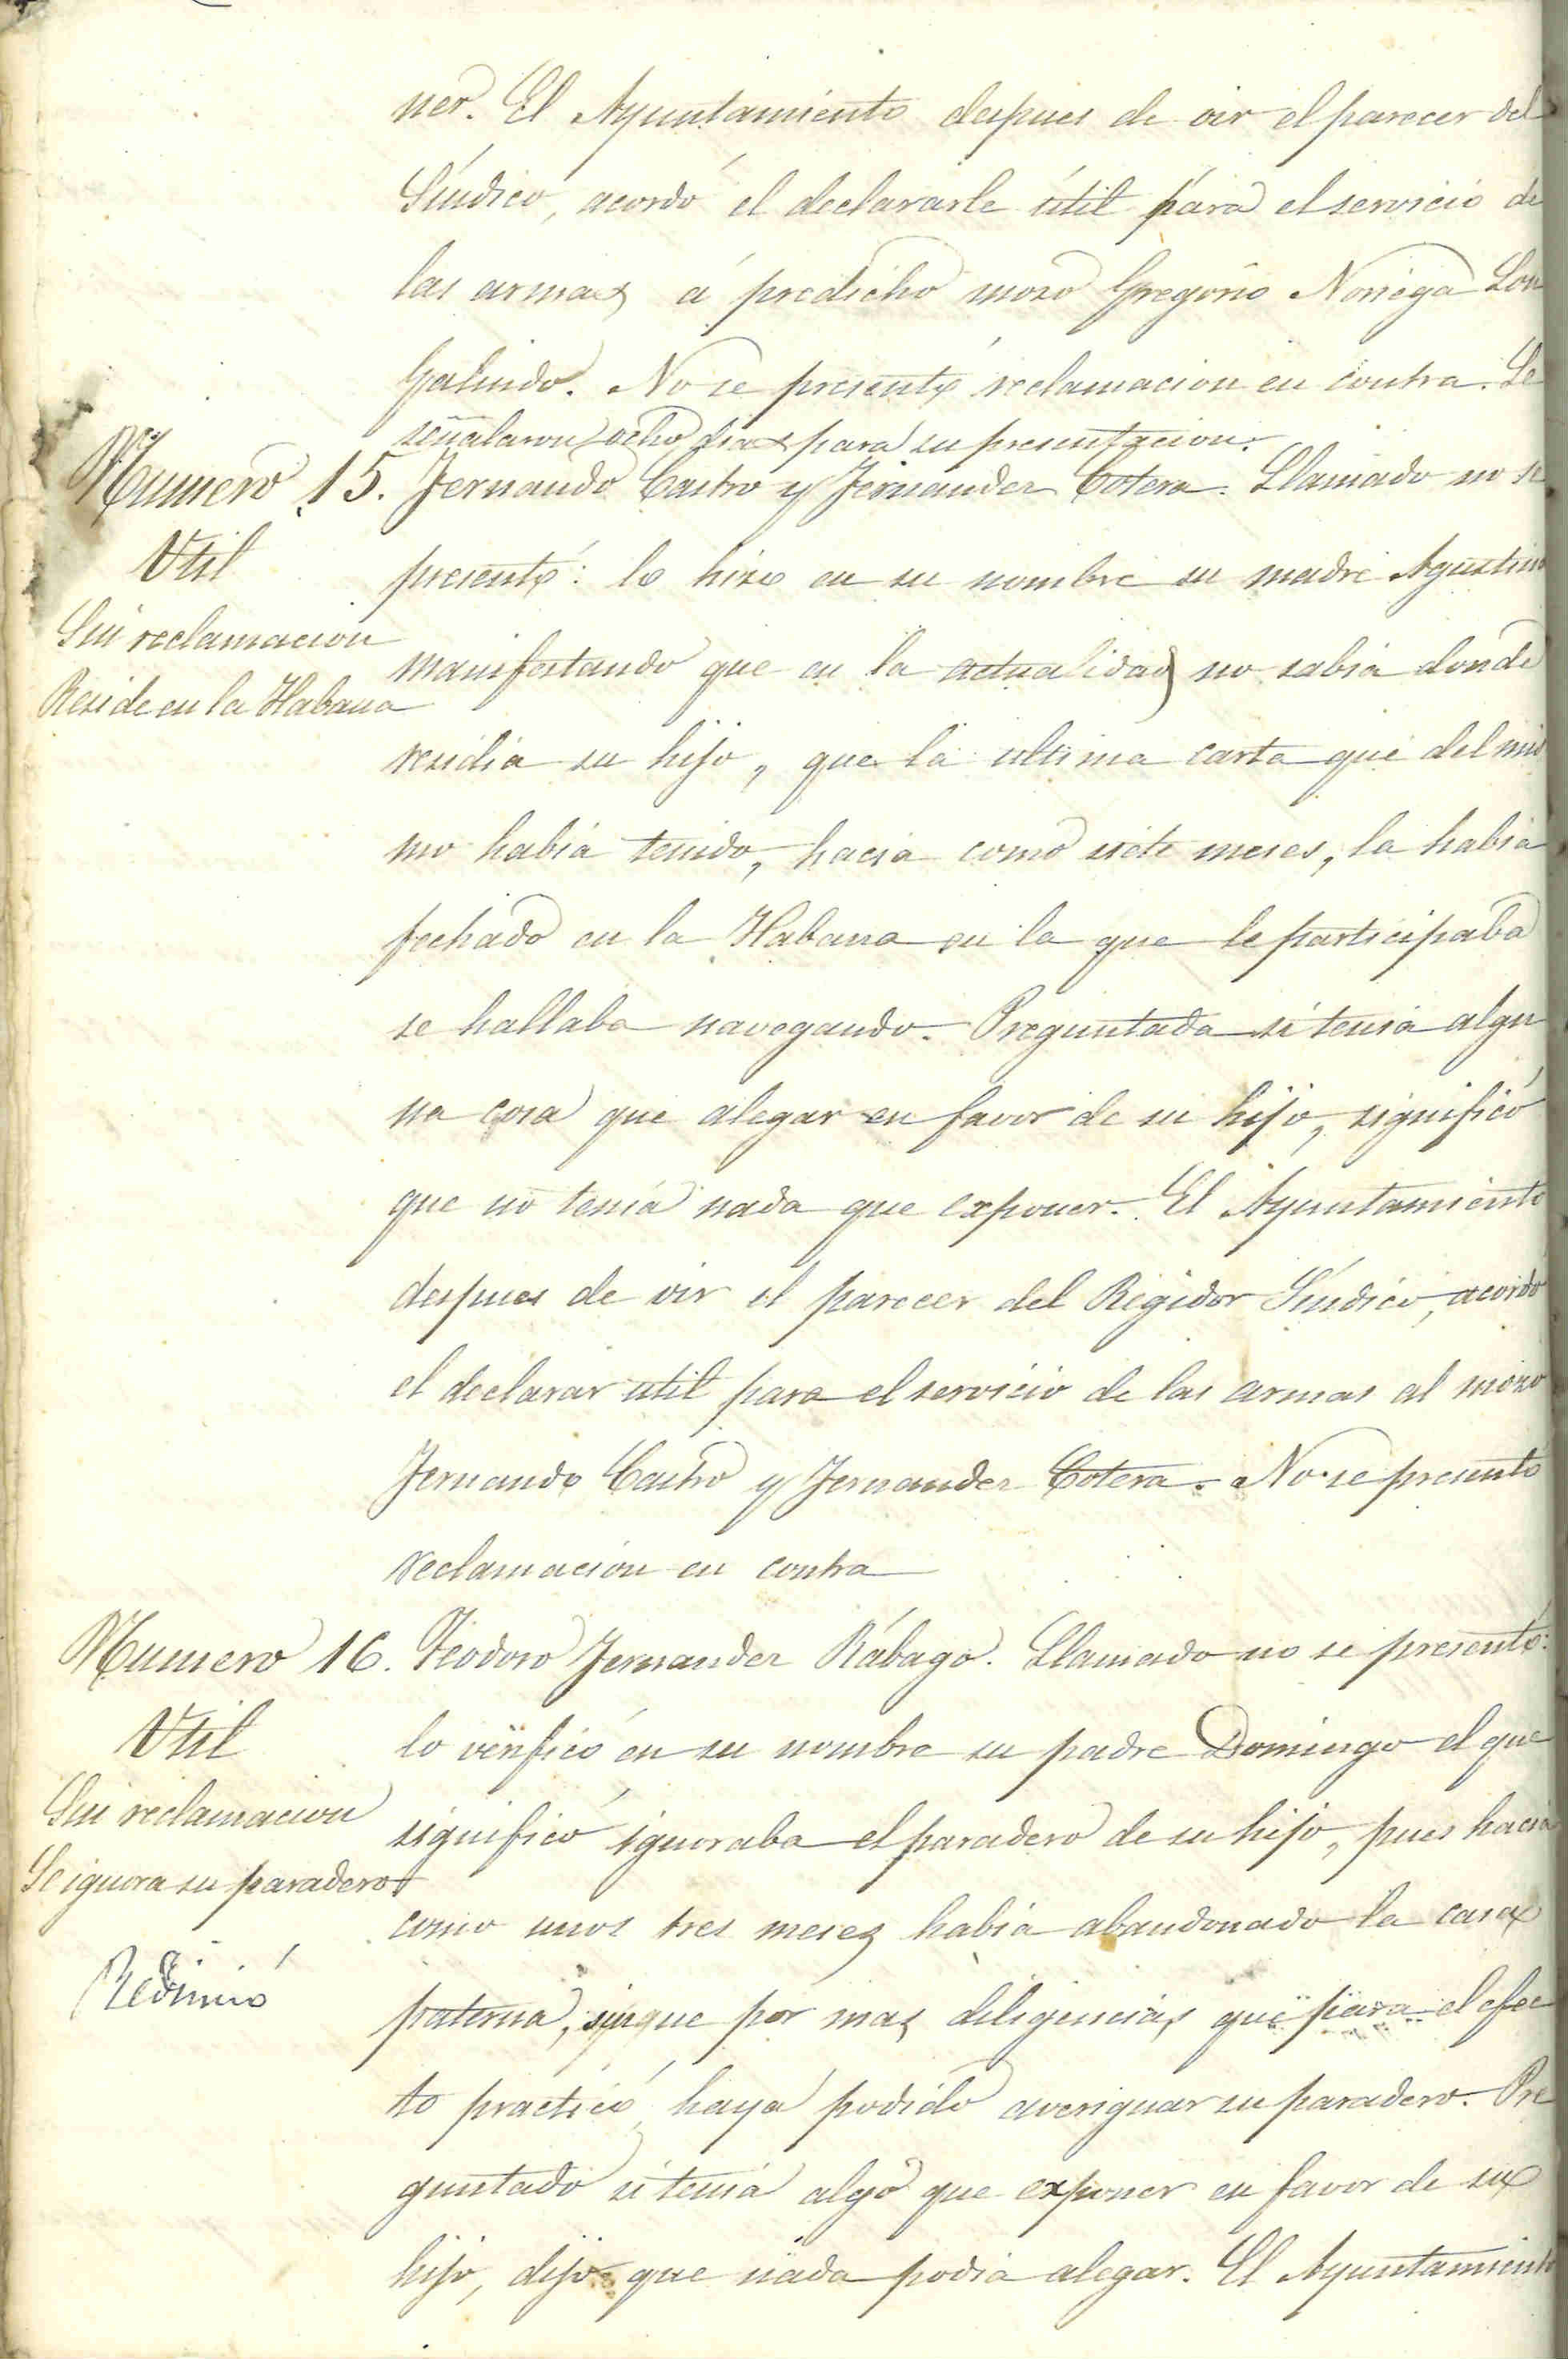 ner. El Ayuntamiento despues de oir el parecer del
Síndico, acordó el declararle útil para el servicio de
las armas á predicho mozo Gregorio Noriega Son
Galindo. No se presentó reclamacion en contra. Se
señalaron ocho dias para su presentacion.
Numero 15. Fernando Castro y Fernandez Cotera. Llamado no se
Util
presentó: lo hizo en su nombre su madre Agustina
Sin reclamacion
manifestando que en la actualidad no sabia donde
Reside en la Habana
residia su hijo, que la ultima carta que del mis
mo habia tenido, hacia como siete meses, la habia
fechado en la Habana en la que le participaba
se hallaba navegando. Preguntada si tenia algu
na cosa que alegar en favor de su hijo, significó
que no tenia nada que exponer. El Ayuntamiento
despues de oir el parecer del Regidor Síndico, acordó
el declarar util para el servicio de las armas al mozo
Fernando Castro y Fernandez Cotera. No se presentó
reclamacion en contra
Numero 16. Teodoro Fernandez Rábago. Llamado no se presentó:
Util
lo verificó en su nombre su padre Domingo el que
Sin reclamacion
significó ignoraba el paradero de su hijo, pues hacia
Se ignora su paradero
como unos tres meses habia abandonado la casa
Redimió
paterna, sin que por mas diligencias que para el efec
to practicó haya podido averiguar su paradero. Pre
guntado si tenia algo que exponer en favor de su
hijo, dijo que nada podia alegar. El Ayuntamiento